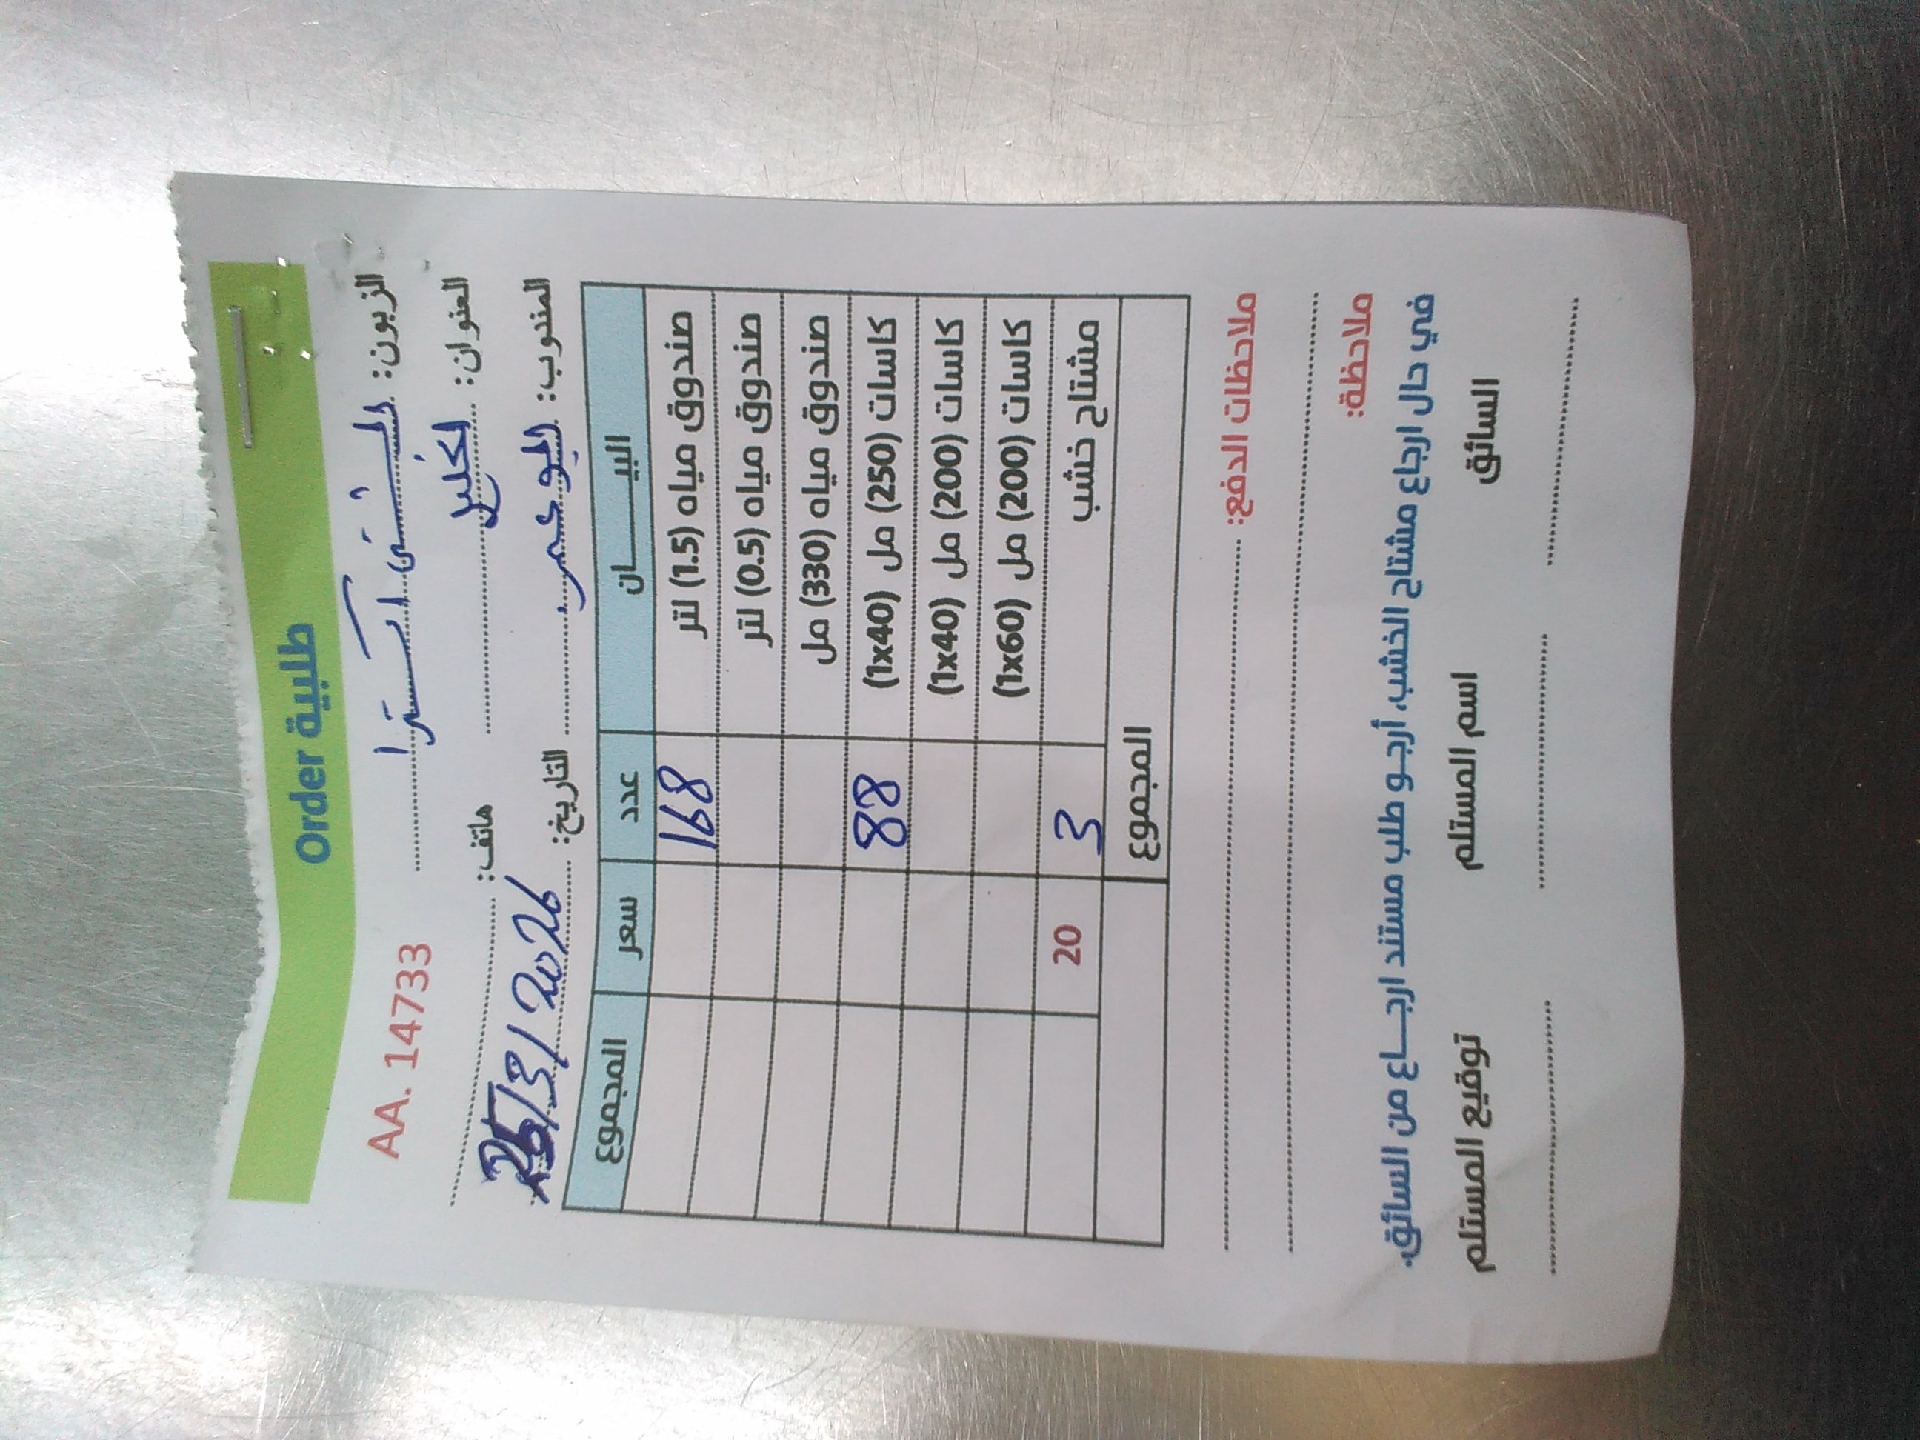 طلبية Order
الزبون: المشتى استرا AA. 14733
العنوان: الخليل هاتف:
المندوب: ابو عمر التاريخ: 25/3/2026
البيــــــان عدد سعر المجموع
صندوق مياه (1.5) لتر 168
صندوق مياه (0.5) لتر
صندوق مياه (330) مل
كاسات (250) مل (1x40) 88
كاسات (200) مل (1x40)
كاسات (200) مل (1x60)
مشتاح خشب 3 20
المجموع
ملاحظات الدفع:
ملاحظة:
في حال ارجاع مشتاح الخشب، أرجو طلب مستند ارجـــاع من السائق.
السائق اسم المستلم توقيع المستلم